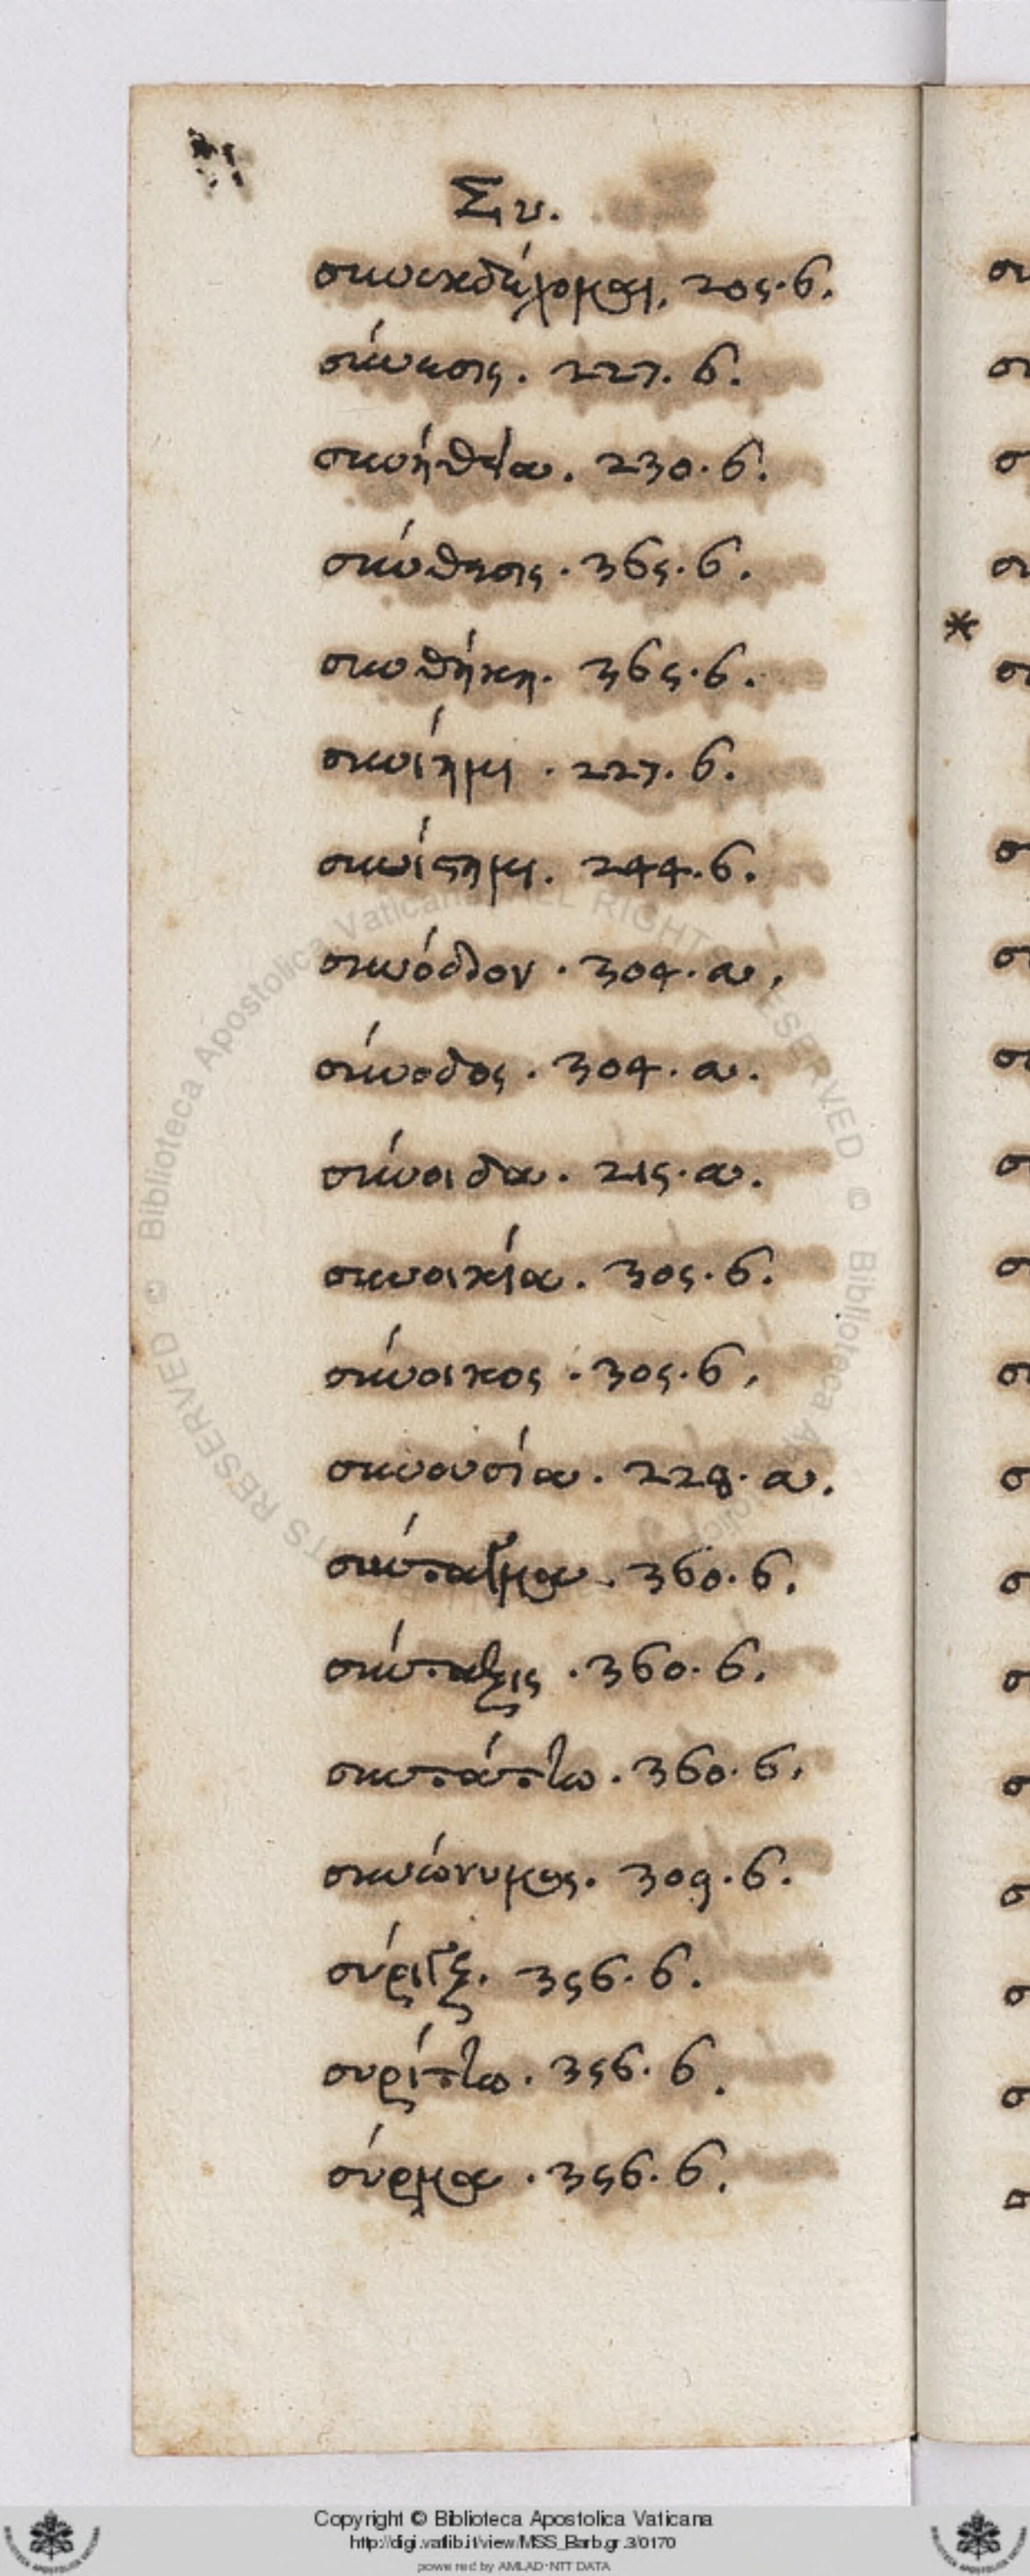 Συ.
συνεκδέχομαι. 205. β.
σύνεσις. 227. β.
συνήθεια. 230. β.
σύνθεσις. 365. β.
συνθήκη. 365. β.
συνίημι. 227. β.
συνίστημι. 244. β.
συνόλον. 304. α.
σύνοδος. 304. α.
σύνοιδα. 215. α.
συνοικία. 305. β.
σύνοικος. 305. β.
συνουσία. 228. α.
σύνταγμα. 360. β.
σύνταξις. 360. β.
συντάττω. 360. β.
συνώνυμος. 309. β.
σύριγξ. 356. β.
συρίττω. 356. β.
σύρμα. 356. β.
Copyright © Biblioteca Apostolica Vaticana
http://digi.vatlib.it/view/MSS_Barb.gr.3/0170
powered by AMLAD-NTT DATA